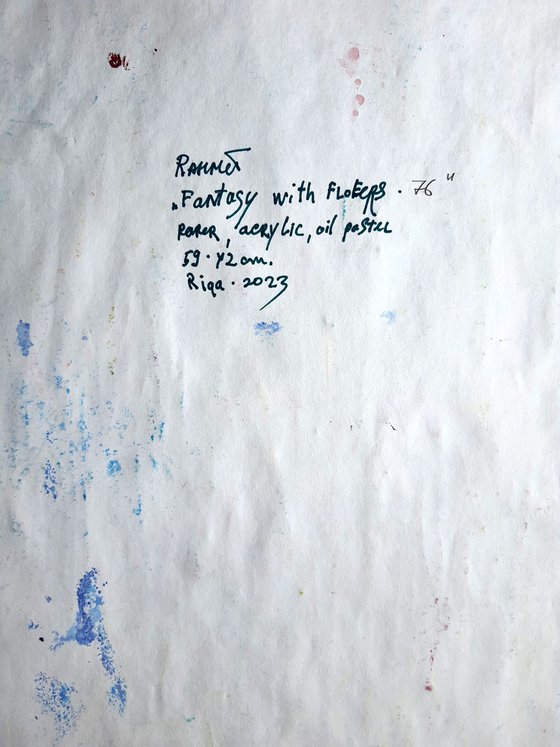 Rahmet
„Fantasy with Floeers. 76"
paper, acrylic, oil pastel
59·42 cm.
Riga·2023